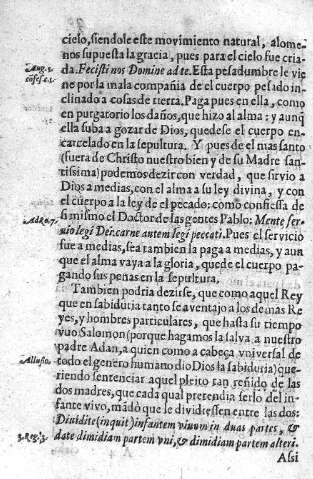 cielo, siendole este movimiento natural, alome-
nos supuesta la gracia, pues para el cielo fue cria-
da. Fecisti nos Domine ad te. Esta pesadumbre le vie
ne por la mala compañia de el cuerpo pesado in-
clinado a cosas de tierra. Paga pues en ella, como
en purgatorio los daños, que hizo al alma: y aunq̃
ella suba a gozar de Dios, quedese el cuerpo en-
carcelado en la sepultura. Y pues de el mas santo
(fuera de Christo nuestro bien y de su Madre san-
tissima) podemos dezir con verdad, que sirvio a
Dios a medias, con el alma a su ley divina, y con
el cuerpo a la ley de el pecado: como confiessa de
si mismo el Doctor de las gentes Pablo: Mente ser-
uio legi Dei: carne autem legi peccati. Pues el servicio
fue a medias, sea tambien la paga a medias, y aun
que el alma vaya a la gloria, quede el cuerpo pa-
gando sus penas en la sepultura.
Tambien podria dezirse, que como aquel Rey
que en sabiduria tanto se aventajo a los demas Re
yes, y hombres particulares, que hasta su tiempo
vuo Salomon (porque hagamos la salva a nuestro
padre Adan, a quien como a cabeça vniversal de
todo el genero humano dio Dios la sabiduria) que-
riendo sentenciar aquel pleito tan reñido de las
dos madres, que cada qual pretendia serlo del in-
fante vivo, mãdò que le dividiessen entre las dos:
Diuidite (inquit) infantem viuum in duas partes, &
date dimidiam partem vni, & dimidiam partem alteri.
Assi
Aug. 1.
cõfes. c. 1.
Ad Ro. 7.
Allusio.
3. Reg. 3.